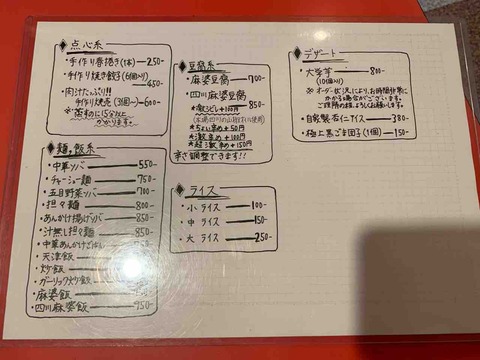 点心系
・手作り春捲き(1本)—250-
・手作り焼き餃子(6個入り)
—450
・肉汁たっぷり!!
手作り焼売(3個〜)—600-
※蒸すのに15分以上
かかります。
麺,飯系
・中華ソバ—550-
・チャーシュー麺—750-
・五目野菜ソバ—700-
・担々麺—800-
・あんかけ揚げソバ—850-
・汁無し担々麺—850
・中華あんかけごはん
・天津飯
・炒飯
・ガーリック炒飯
・麻婆飯
・四川麻婆飯—950-
豆腐系
・麻婆豆腐—700-
・四川麻婆豆腐
850
(本場四川の山椒使用)
※ちょい辛+50円
※激辛+100円
※超激辛+150円
辛さ調整できます!!
ライス
・小 ライス—100-
・中 ライス—150-
・大 ライス—250-
デザート
・大学芋—800-
(10個入り)
※オーダー状況により、お時間非常に
かかる場合がございます。
ご理解の程、よろしくお願いします。
・自家製杏仁アイス—380-
・極上黒ごま団子(1個)—150-